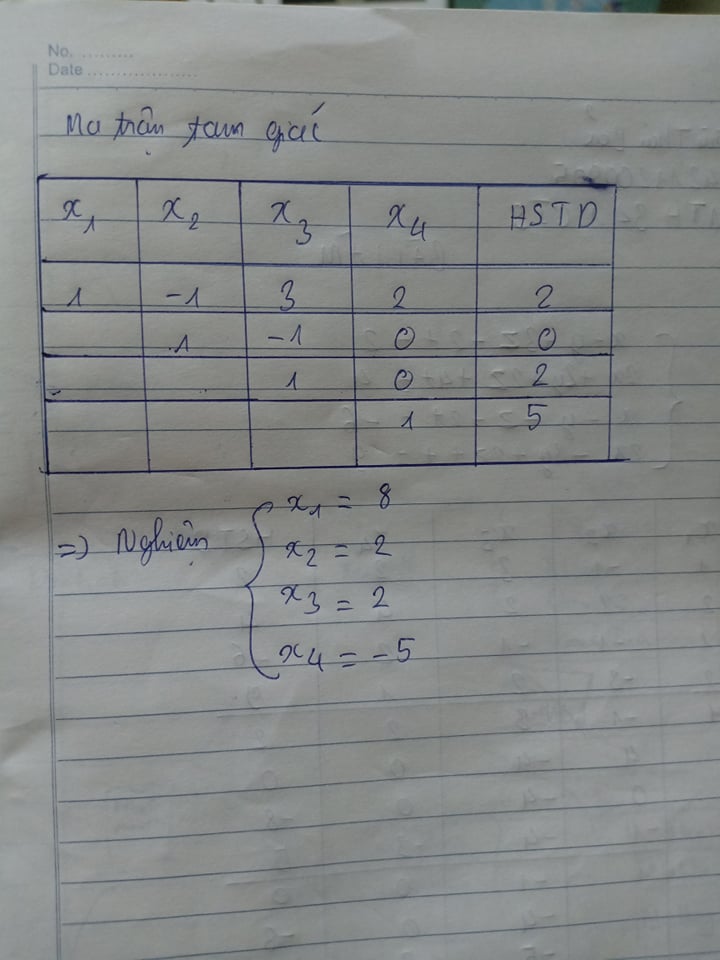 No. .........
Date ...................
Ma trận tam giác
x₁ x₂ x₃ x₄ HSTD
1 -1 3 2 2
1 -1 0 0
1 0 2
1 5
x₁ = 8
=) Nghiệm x₂ = 2
x₃ = 2
x₄ = -5